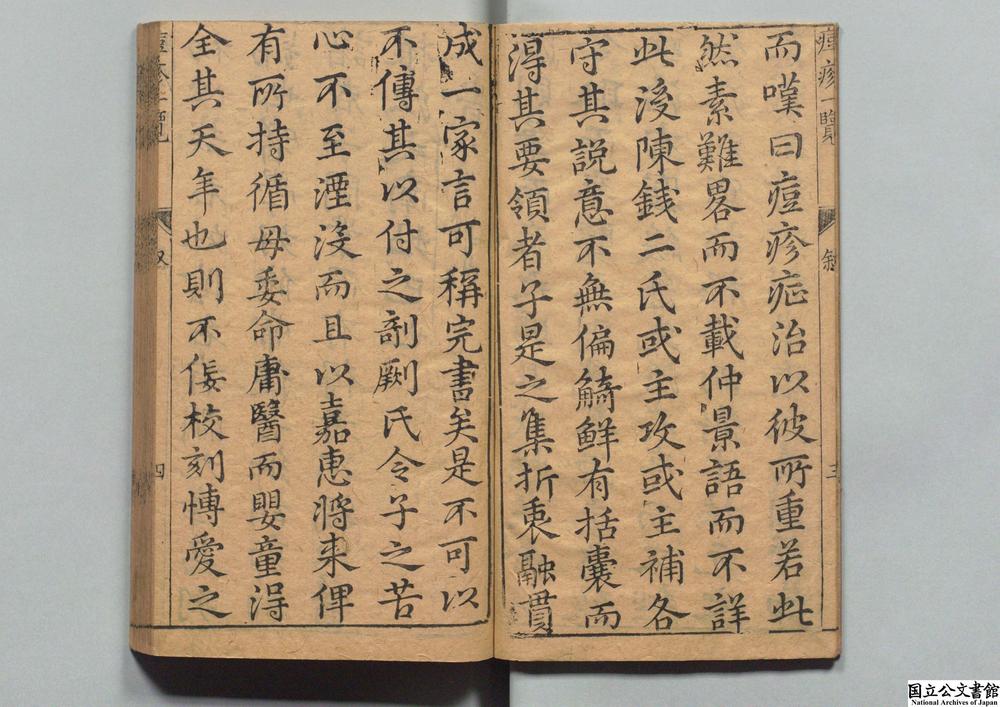 痘疹一覽
敘
三
而嘆曰痘疹症治以彼所重若此
然素難畧而不載仲景語而不詳
此後陳錢二氏或主攻或主補各
守其說意不無偏觭鮮有括囊而
得其要領者子是之集折衷融貫
成一家言可稱完書矣是不可以
不傳其以付之剞劂氏令子之苦
心不至湮沒而且以嘉惠將來俾
有所持循毋委命庸醫而嬰童得
全其天年也則不佞校刻慱愛之
痘疹一覽
四
国立公文書館
National Archives of Japan